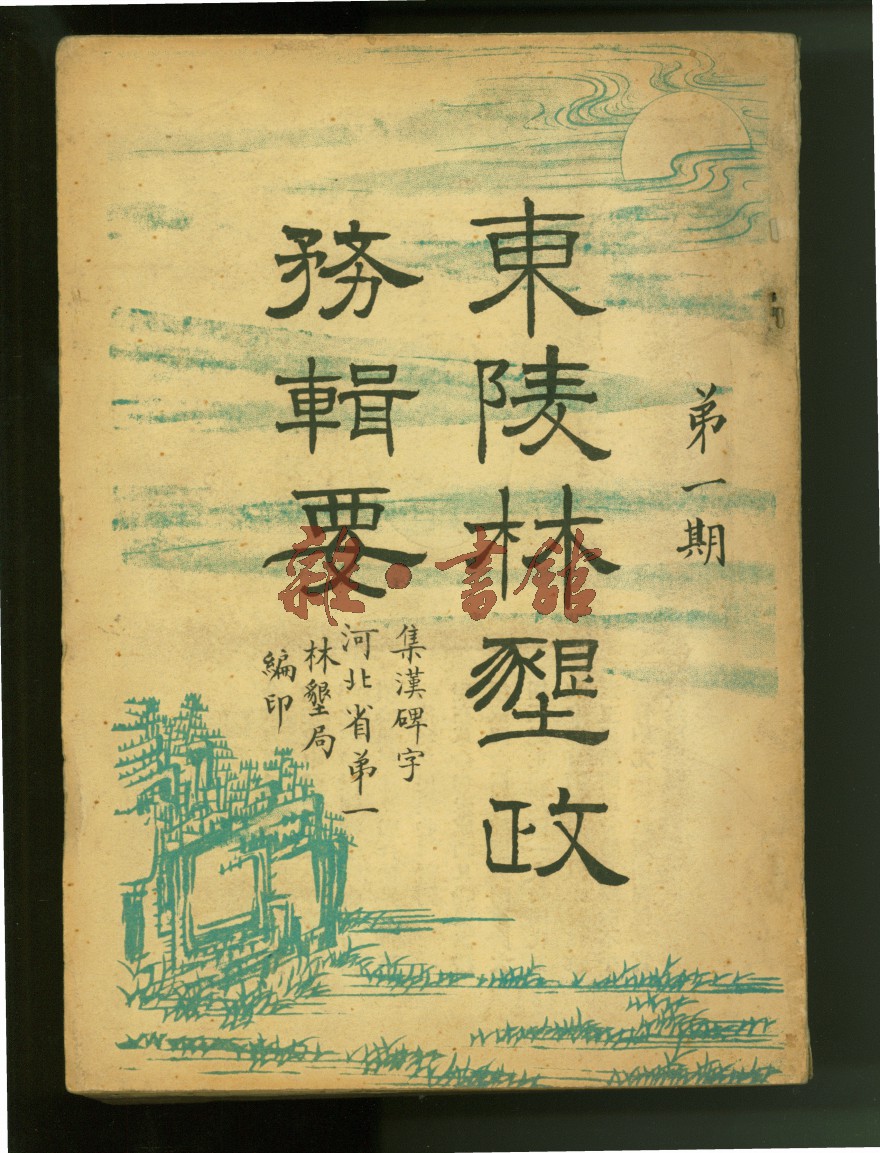 第一期
東陵林墾政
務輯要
集漢碑字
河北省第一
林墾局
編印
雜·書館